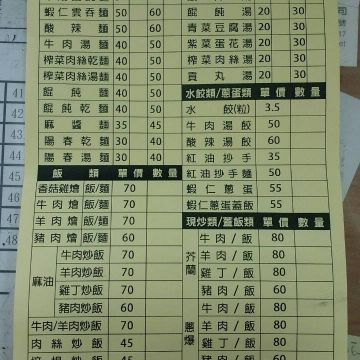 蝦仁雲吞麵 50 60
酸辣麵 50 60
牛肉湯麵 40 50
榨菜肉絲乾麵 40 50
榨菜肉絲湯麵 40 50
餛飩麵 40 50
餛飩乾麵 40 50
麻醬麵 35 45
陽春乾麵 30 40
陽春湯麵 30 40
飯類 單價 數量
香菇雞燴飯/麵 70
牛肉燴飯/麵 70
羊肉燴飯/麵 70
豬肉燴飯/麵 60
麻油
牛肉炒飯 70
羊肉炒飯 70
雞丁炒飯 70
豬肉炒飯 60
牛肉/羊肉炒飯 70
肉絲炒飯 45
餛飩湯 20 30
青菜豆腐湯 20 30
紫菜蛋花湯 20 30
榨菜肉絲湯 20 30
貢丸湯 20 30
水餃類/蔥蛋類 單價 數量
水餃(粒) 3.5
牛肉湯餃 50
酸辣湯餃 60
紅油抄手 35
紅油抄手麵 50
蝦仁蔥蛋 55
蝦仁蔥蛋蓋飯 55
現炒類/蓋飯類 單價 數量
芥蘭
牛肉/飯 80
羊肉/飯 80
雞丁/飯 80
豬肉/飯 60
蔥爆
牛肉/飯 80
羊肉/飯 80
雞丁/飯 80
豬肉/飯 60